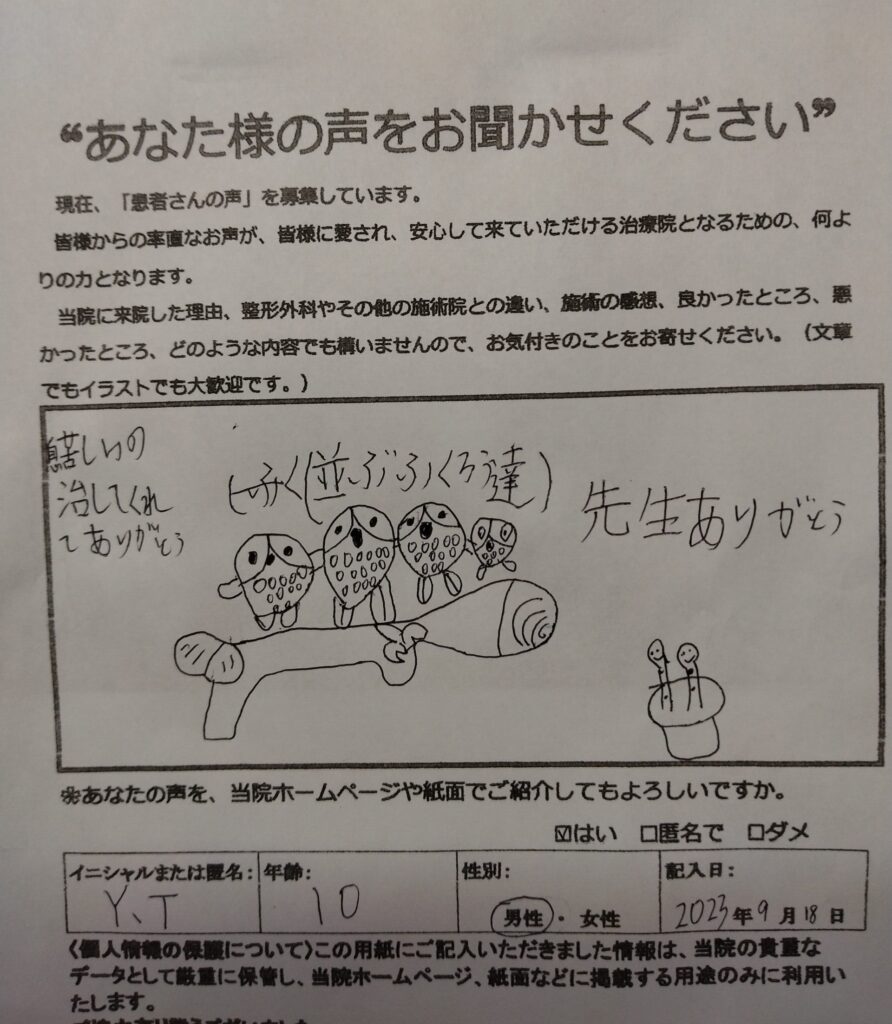 “あなた様の声をお聞かせください”
現在、「患者さんの声」を募集しています。
皆様からの率直なお声が、皆様に愛され、安心して来ていただける治療院となるための、何よ
りの力となります。
当院に来院した理由、整形外科やその他の施術院との違い、施術の感想、良かったところ、悪
かったところ、どのような内容でも構いませんので、お気付きのことをお寄せください。（文章
でもイラストでも大歓迎です。）
苦しいの
治してくれ
てありがとう
並ぶふくろう達
先生ありがとう
※あなたの声を、当院ホームページや紙面でご紹介してもよろしいですか。
☑はい □匿名で □ダメ
イニシャルまたは匿名: 年齢: 性別: 記入日:
Y、T 10 男性・女性 2023年9月18日
〈個人情報の保護について〉この用紙にご記入いただきました情報は、当院の貴重な
データとして厳重に保管し、当院ホームページ、紙面などに掲載する用途のみに利用い
たします。